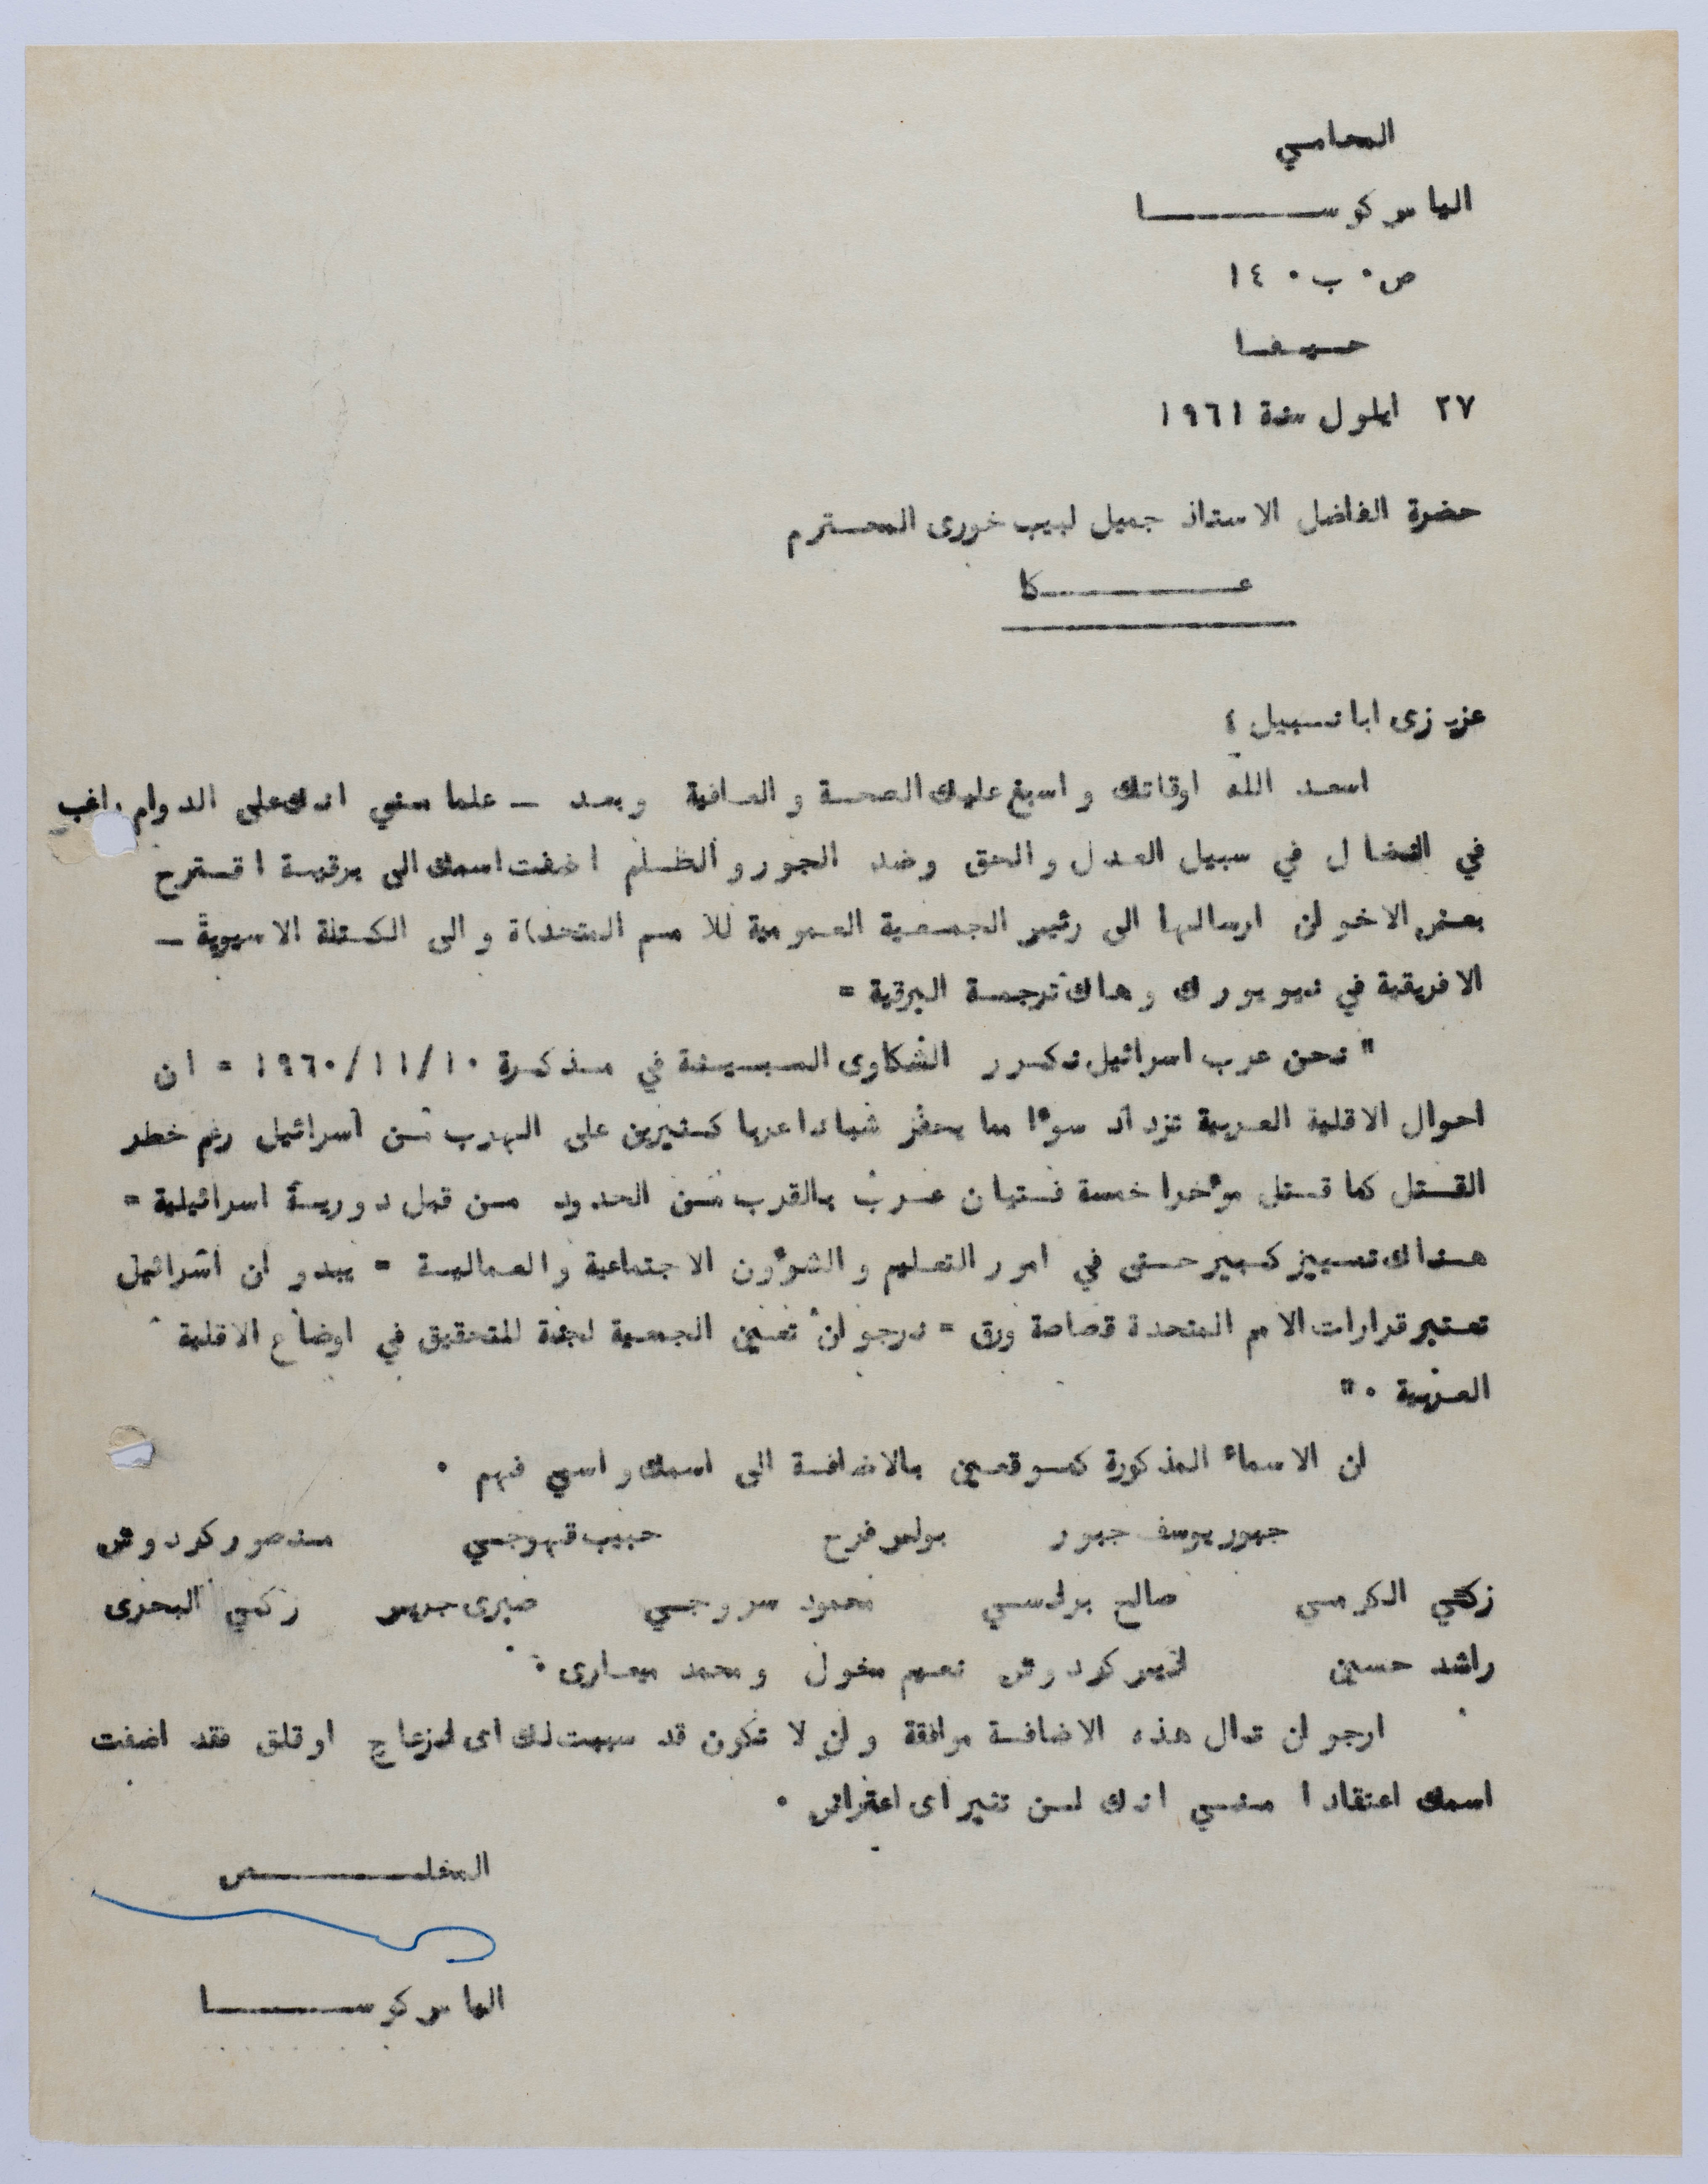 المحامي
الياس كوســـــــــا
ص٠ ب٠ ١٤
حــيــفــا
٢٧ ايلول سنة ١٩٦١
حضرة الفاضل الاستاذ جميل لبيب خورى المحــترم
عـــــــــــكا
عزيزى ابا نــبيل ؛
اسعــد الله اوقاتك واسبغ عليك الصحــة والعــافية وبعــد ــ علما مني انك على الدوام راغب
في النضال في سبيل العدل والحق وضد الجور والظــلم اضفت اسمك الى برقيــة اقــترح
بعض الاخوان ارسالها الى رئيس الجمــعية العمومية للامــم المتحدة والى الكــتلة الاسيوية ــ
الافريقية في نيويورك وهاك ترجمــة البرقية =
" نحن عرب اسرائيل نكــرر الشكاوى المــبــيــنة في مــذكــرة ١٩٦٠/١١/١٠ = ان
احوال الاقلية العــربية تزداد سوءًا مما يحفز شبانا عربا كــثيرين على الهرب مــن اسرائيل رغم خطر
القــتل كما قــتل مؤخرا خمسة فــتيان عــرب بالقرب مــن الحدود مــن قبل دوريــة اسرائيلية =
هــناك تمــييز كــبير حــتى في امور التعــليم والشؤون الاجتماعية والعــماليــة = يبدو ان اسرائيل
تعــتبر قرارات الامم المتحدة قصاصة ورق = نرجو ان تعــين الجمعــية لجنة للتحقيق في اوضاع الاقلية
العــربية ٠ "
ان الاسماء المذكورة كمــوقعــين بالاضافــة الى اسمك واسمي فهم ٠
جبور يوسف جبور بولس فرح حبيب قهوجــي مــنصور كردوش
زكي الكرمــي صالح برانــسي محمود سروجــي صبرى جريس زكي البحرى
راشد حسين انيس كردوش نعــيم مخول ومحمد ميعــارى ٠
ارجو ان تنال هذه الاضافــة موافقة وان لا تكون قد سببت لك اى انزعاج او قلق فقد اضفت
اسمك اعتقادا مــنــي انك لــن تثير اى اعتراض ٠
المخلــــــــــــص
الياس كوســـــــــا